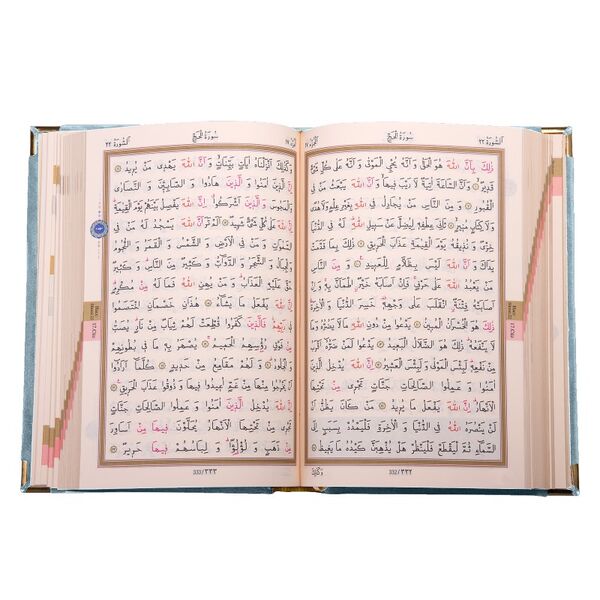 اَلسُّورَةُ ٢٢ سُورَةُ الْحَجِّ اَلْجُزْءُ ١٧
ذٰلِكَ بِاَنَّ اللّٰهَ هُوَ الْحَقُّ وَاَنَّهُ يُحْيِ الْمَوْتٰى وَاَنَّهُ عَلٰى كُلِّ شَىْءٍ
قَدِيرٌ وَاَنَّ السَّاعَةَ اٰتِيَةٌ لَا رَيْبَ فِيهَا وَاَنَّ اللّٰهَ يَبْعَثُ مَنْ فِى
الْقُبُورِ وَمِنَ النَّاسِ مَنْ يُجَادِلُ فِى اللّٰهِ بِغَيْرِ عِلْمٍ وَلَا هُدًى
وَلَا كِتَابٍ مُنِيرٍ ثَانِىَ عِطْفِهِ لِيُضِلَّ عَنْ سَبِيلِ اللّٰهِ لَهُ فِى الدُّنْيَا
خِزْىٌ وَنُذِيقُهُ يَوْمَ الْقِيٰمَةِ عَذَابَ الْحَرِيقِ ذٰلِكَ بِمَا قَدَّمَتْ
يَدَاكَ وَاَنَّ اللّٰهَ لَيْسَ بِظَلَّامٍ لِلْعَبِيدِ وَمِنَ النَّاسِ
مَنْ يَعْبُدُ اللّٰهَ عَلٰى حَرْفٍ فَاِنْ اَصَابَهُ خَيْرٌ اطْمَاَنَّ بِهِ وَاِنْ
اَصَابَتْهُ فِتْنَةٌ انْقَلَبَ عَلٰى وَجْهِهِ خَسِرَ الدُّنْيَا وَالْاٰخِرَةَ
ذٰلِكَ هُوَ الْخُسْرَانُ الْمُبِينُ يَدْعُوا مِنْ دُونِ اللّٰهِ مَا لَا يَضُرُّهُ وَمَا
لَا يَنْفَعُهُ ذٰلِكَ هُوَ الضَّلَالُ الْبَعِيدُ يَدْعُوا لَمَنْ ضَرُّهُ اَقْرَبُ
مِنْ نَفْعِهِ لَبِئْسَ الْمَوْلٰى وَلَبِئْسَ الْعَشِيرُ اِنَّ اللّٰهَ يُدْخِلُ
الَّذِينَ اٰمَنُوا وَعَمِلُوا الصَّالِحَاتِ جَنَّاتٍ تَجْرِى مِنْ تَحْتِهَا
الْاَنْهَارُ اِنَّ اللّٰهَ يَفْعَلُ مَا يُرِيدُ مَنْ كَانَ يَظُنُّ اَنْ
لَنْ يَنْصُرَهُ اللّٰهُ فِى الدُّنْيَا وَالْاٰخِرَةِ فَلْيَمْدُدْ بِسَبَبٍ اِلَى
السَّمَاءِ ثُمَّ لْيَقْطَعْ فَلْيَنْظُرْ هَلْ يُذْهِبَنَّ كَيْدُهُ مَا يَغِيظُ
332/٣٣٢ وَكَذٰلِكَ
اَلسُّورَةُ ٢٢ سُورَةُ الْحَجِّ اَلْجُزْءُ ١٧
وَكَذٰلِكَ اَنْزَلْنَاهُ اٰيَاتٍ بَيِّنَاتٍ وَاَنَّ اللّٰهَ يَهْدِى مَنْ يُرِيدُ
اِنَّ الَّذِينَ اٰمَنُوا وَالَّذِينَ هَادُوا وَالصَّابِئِينَ وَالنَّصَارٰى
وَالْمَجُوسَ وَالَّذِينَ اَشْرَكُوا اِنَّ اللّٰهَ يَفْصِلُ بَيْنَهُمْ يَوْمَ الْقِيٰمَةِ
اِنَّ اللّٰهَ عَلٰى كُلِّ شَىْءٍ شَهِيدٌ اَلَمْ تَرَ اَنَّ اللّٰهَ يَسْجُدُ لَهُ مَنْ فِى
السَّمٰوَاتِ وَمَنْ فِى الْاَرْضِ وَالشَّمْسُ وَالْقَمَرُ وَالنُّجُومُ
وَالْجِبَالُ وَالشَّجَرُ وَالدَّوَابُّ وَكَثِيرٌ مِنَ النَّاسِ وَكَثِيرٌ
حَقَّ عَلَيْهِ الْعَذَابُ وَمَنْ يُهِنِ اللّٰهُ فَمَا لَهُ مِنْ مُكْرِمٍ
اِنَّ اللّٰهَ يَفْعَلُ مَا يَشَاءُ هٰذَانِ خَصْمَانِ اخْتَصَمُوا
فِى رَبِّهِمْ فَالَّذِينَ كَفَرُوا قُطِّعَتْ لَهُمْ ثِيَابٌ مِنْ نَارٍ يُصَبُّ
مِنْ فَوْقِ رُؤُسِهِمُ الْحَمِيمُ يُصْهَرُ بِهِ مَا فِى بُطُونِهِمْ
وَالْجُلُودُ وَلَهُمْ مَقَامِعُ مِنْ حَدِيدٍ كُلَّمَا اَرَادُوا
اَنْ يَخْرُجُوا مِنْهَا مِنْ غَمٍّ اُعِيدُوا فِيهَا وَذُوقُوا عَذَابَ الْحَرِيقِ
اِنَّ اللّٰهَ يُدْخِلُ الَّذِينَ اٰمَنُوا وَعَمِلُوا الصَّالِحَاتِ جَنَّاتٍ
تَجْرِى مِنْ تَحْتِهَا الْاَنْهَارُ يُحَلَّوْنَ فِيهَا مِنْ اَسَاوِرَ
مِنْ ذَهَبٍ وَلُؤْلُؤًا وَلِبَاسُهُمْ فِيهَا حَرِيرٌ
333/٣٣٣